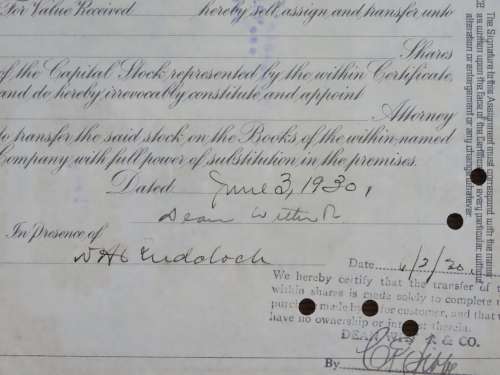 For Value Received hereby sell, assign, and transfer unto
Shares
of the Capital Stock represented by the within Certificate,
and do hereby irrevocably constitute and appoint
Attorney
to transfer the said stock on the Books of the within named
Company with full power of substitution in the premises.
Dated June 3, 1930,
Dean Witter
In Presence of
Date 6/2/30
We hereby certify that the transfer of
within shares is made solely to complete
made by customer, and that
have no ownership or interest therein.
DEAN & CO.
By
The Signature to this Assignment must correspond with the name
as written upon the face of the Certificate every particular without
alteration or enlargement or any change whatever